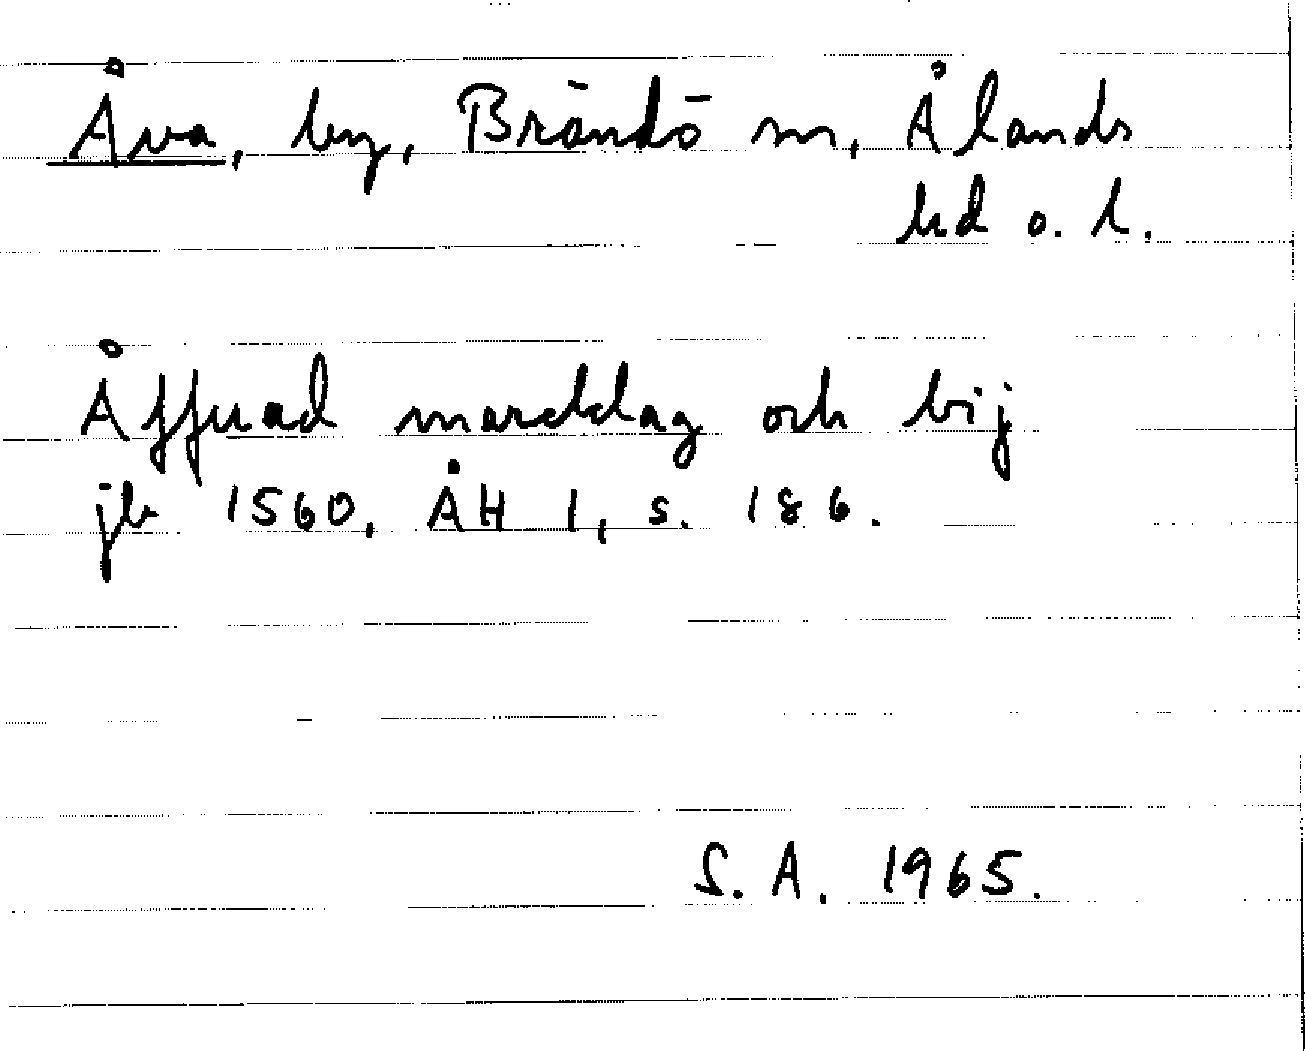 Åva, by, Brändö sn, Ålands
hd o. l.
Åffuad marcklag och bij
jb 1560, ÅH 1, s. 186.
S. A. 1965.